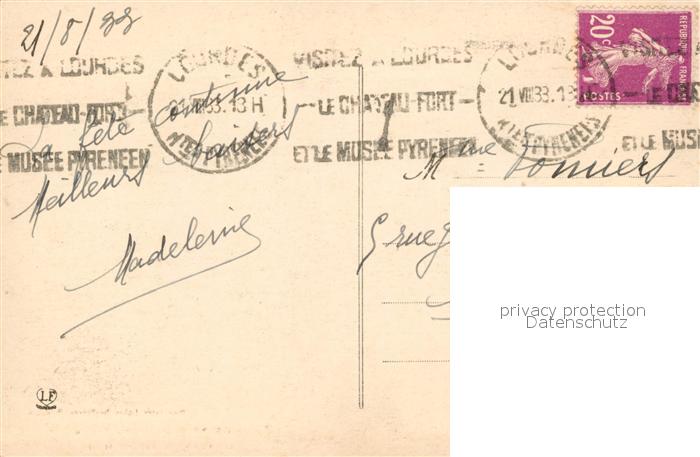 21/8/33
VISITEZ A LOURDES
LE CHATEAU-FORT
ET LE MUSÉE PYRENEEN
LOURDES
21 VIII 33. 13 H
HTES PYRENEES
VISITEZ A LOURDES
LE CHATEAU-FORT
ET LE MUSÉE PYRENEEN
LOURDES
21 VIII 33. 13
HTES PYRENEES
20c
REPUBLIQUE FRANCAISE
POSTES
VISITEZ
LE CHA
ET LE MUSÉ
La fête continue
Meilleurs baisers
Madeleine
Mme
5 rue
LF
privacy protection
Datenschutz